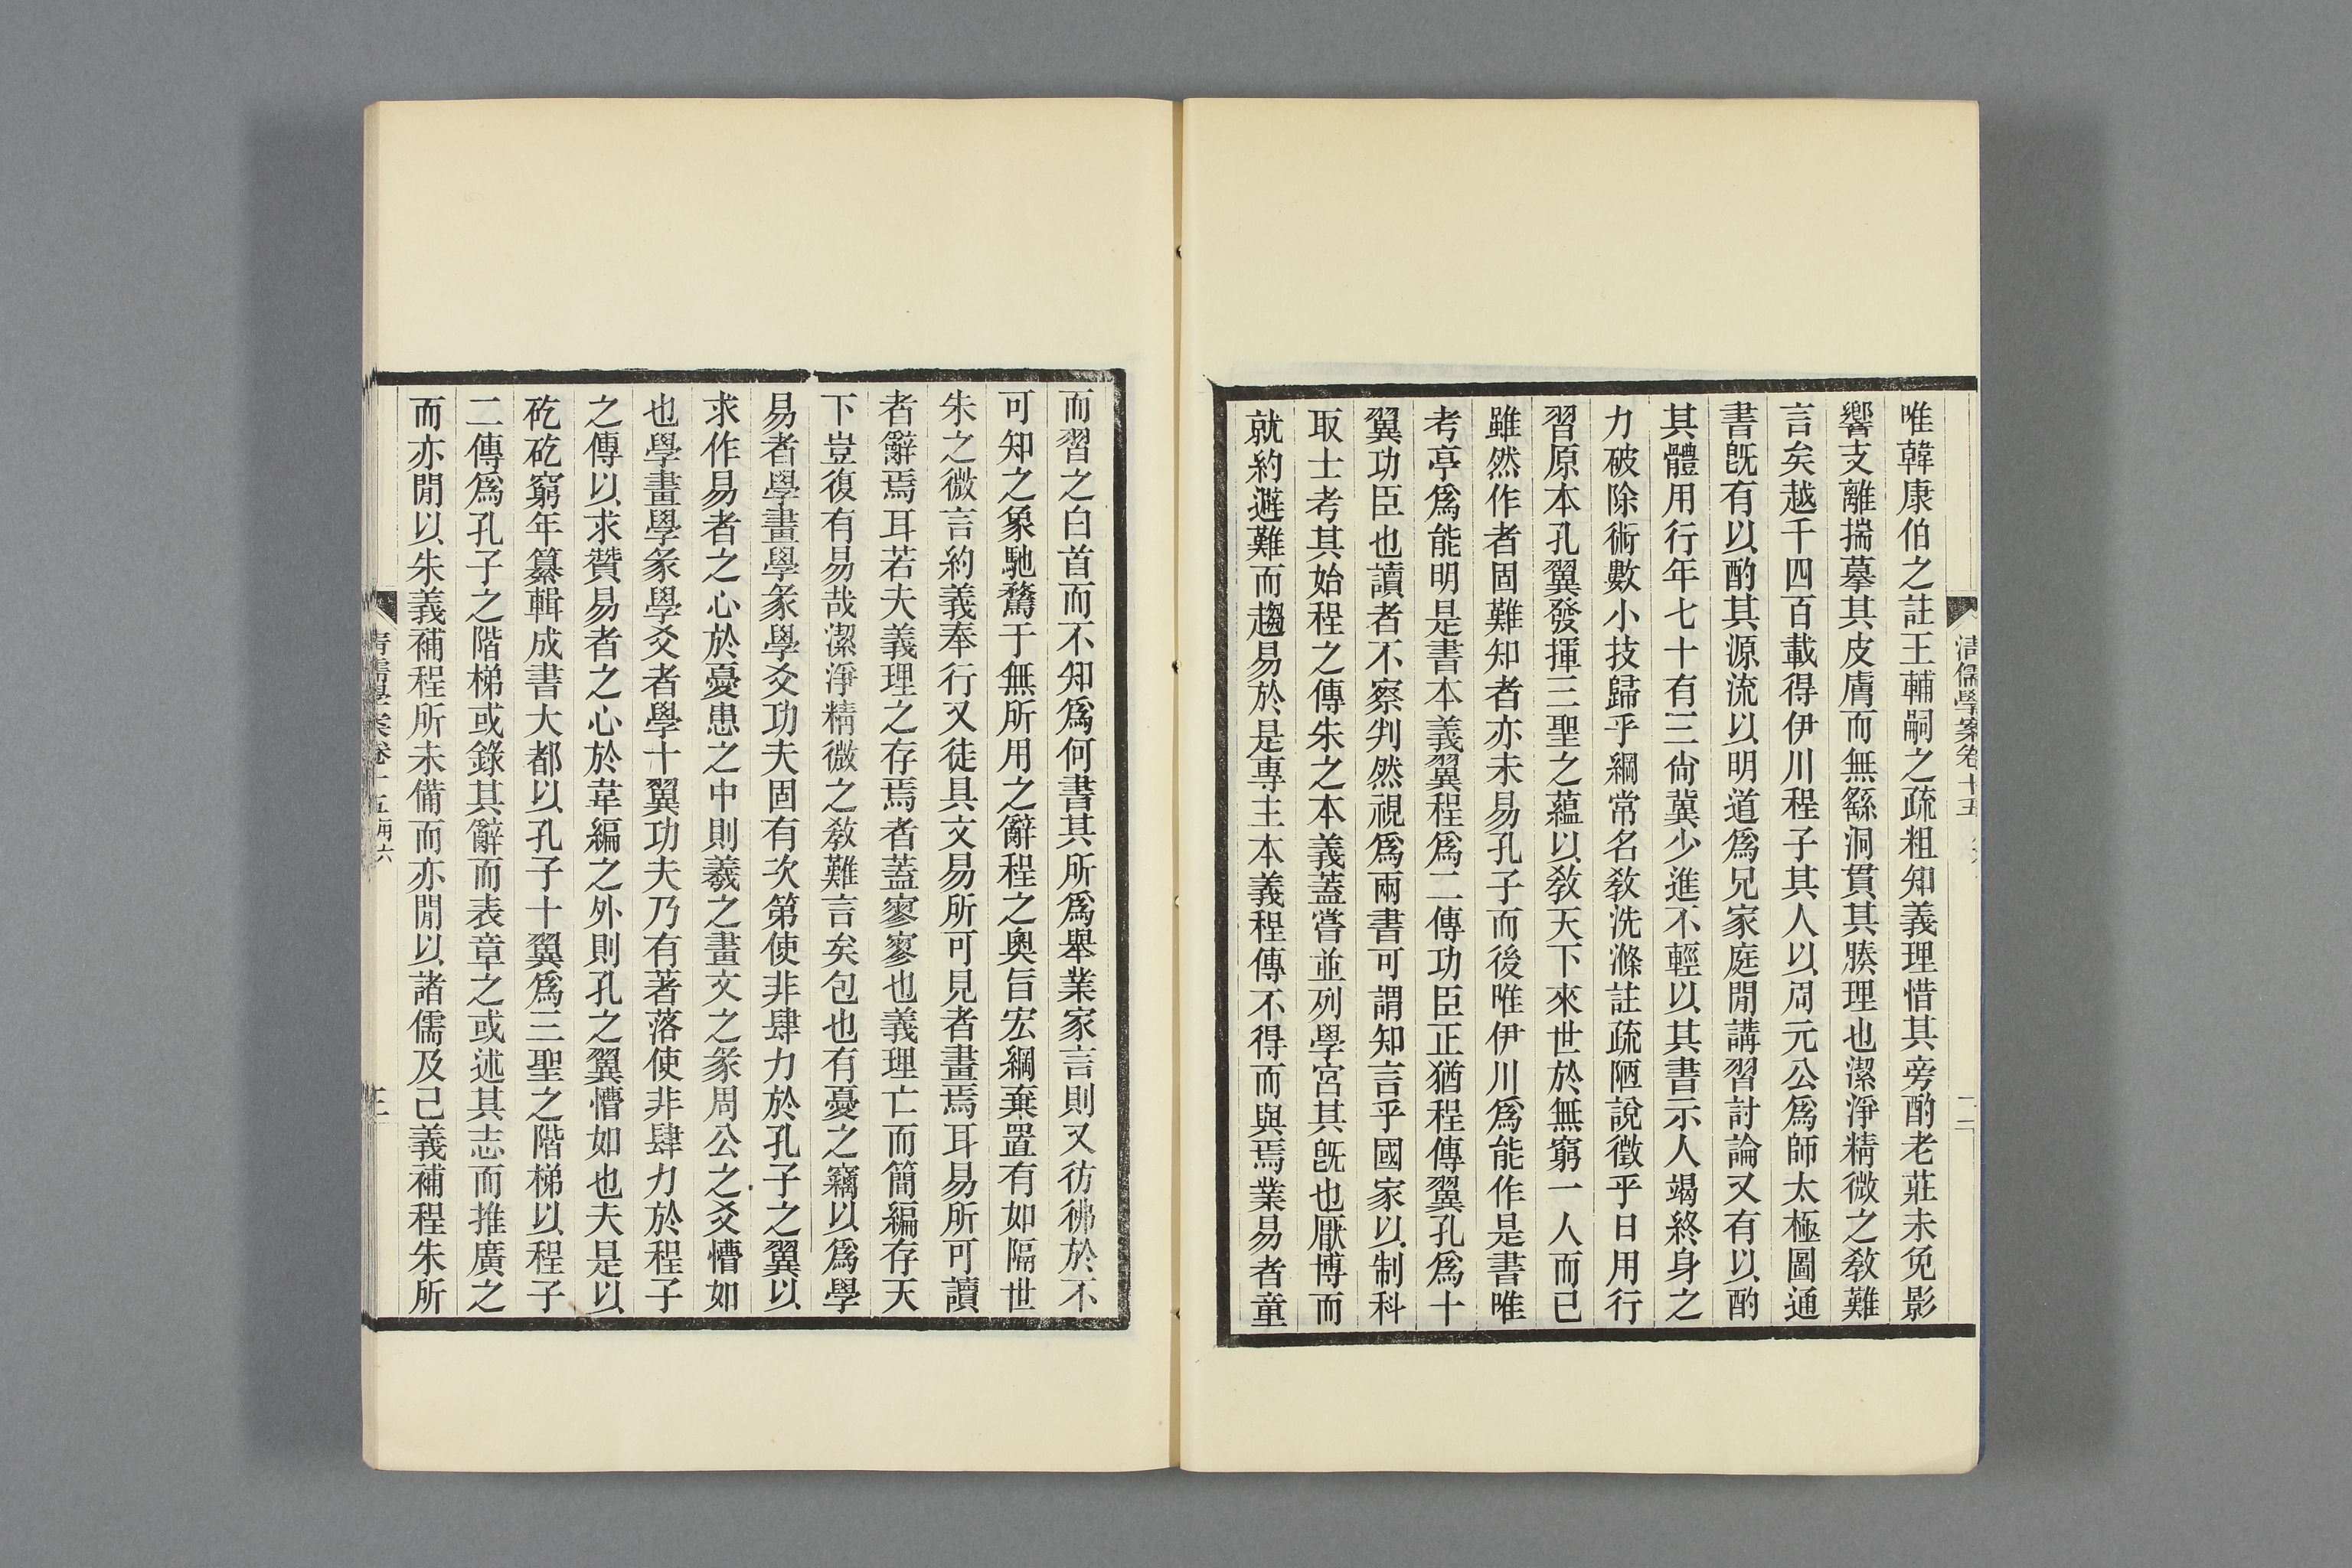 清儒學案卷十五
二
唯韓康伯之註王輔嗣之疏粗知義理惜其旁酌老莊未免影
響支離揣摹其皮膚而無繇洞貫其腠理也潔淨精微之敎難
言矣越千四百載得伊川程子其人以周元公爲師太極圖通
書旣有以酌其源流以明道爲兄家庭閒講習討論又有以酌
其體用行年七十有三尙冀少進不輕以其書示人竭終身之
力破除術數小技歸乎綱常名敎洗滌註疏陋說徵乎日用行
習原本孔翼發揮三聖之蘊以敎天下來世於無窮一人而已
雖然作者固難知者亦未易孔子而後唯伊川爲能作是書唯
考亭爲能明是書本義翼程爲二傳功臣正猶程傳翼孔爲十
翼功臣也讀者不察判然視爲兩書可謂知言乎國家以制科
取士考其始程之傳朱之本義蓋嘗並列學宮其旣也厭博而
就約避難而趨易於是專主本義程傳不得而與焉業易者童
而習之白首而不知爲何書其所爲舉業家言則又彷彿於不
可知之象馳騖于無所用之辭程之奧旨宏綱棄置有如隔世
朱之微言約義奉行又徒具文易所可見者畫焉耳易所可讀
者辭焉耳若夫義理之存焉者蓋寥寥也義理亡而簡編存天
下豈復有易哉潔淨精微之敎難言矣包也有憂之竊以爲學
易者學畫學彖學爻功夫固有次第使非肆力於孔子之翼以
求作易者之心於憂患之中則羲之畫文之彖周公之爻懵如
也學畫學彖學爻者學十翼功夫乃有著落使非肆力於程子
之傳以求贊易者之心於韋編之外則孔之翼懵如也夫是以
矻矻窮年纂輯成書大都以孔子十翼爲三聖之階梯以程子
二傳爲孔子之階梯或錄其辭而表章之或述其志而推廣之
而亦閒以朱義補程所未備而亦閒以諸儒及己義補程朱所
清儒學案卷十五 用六
三